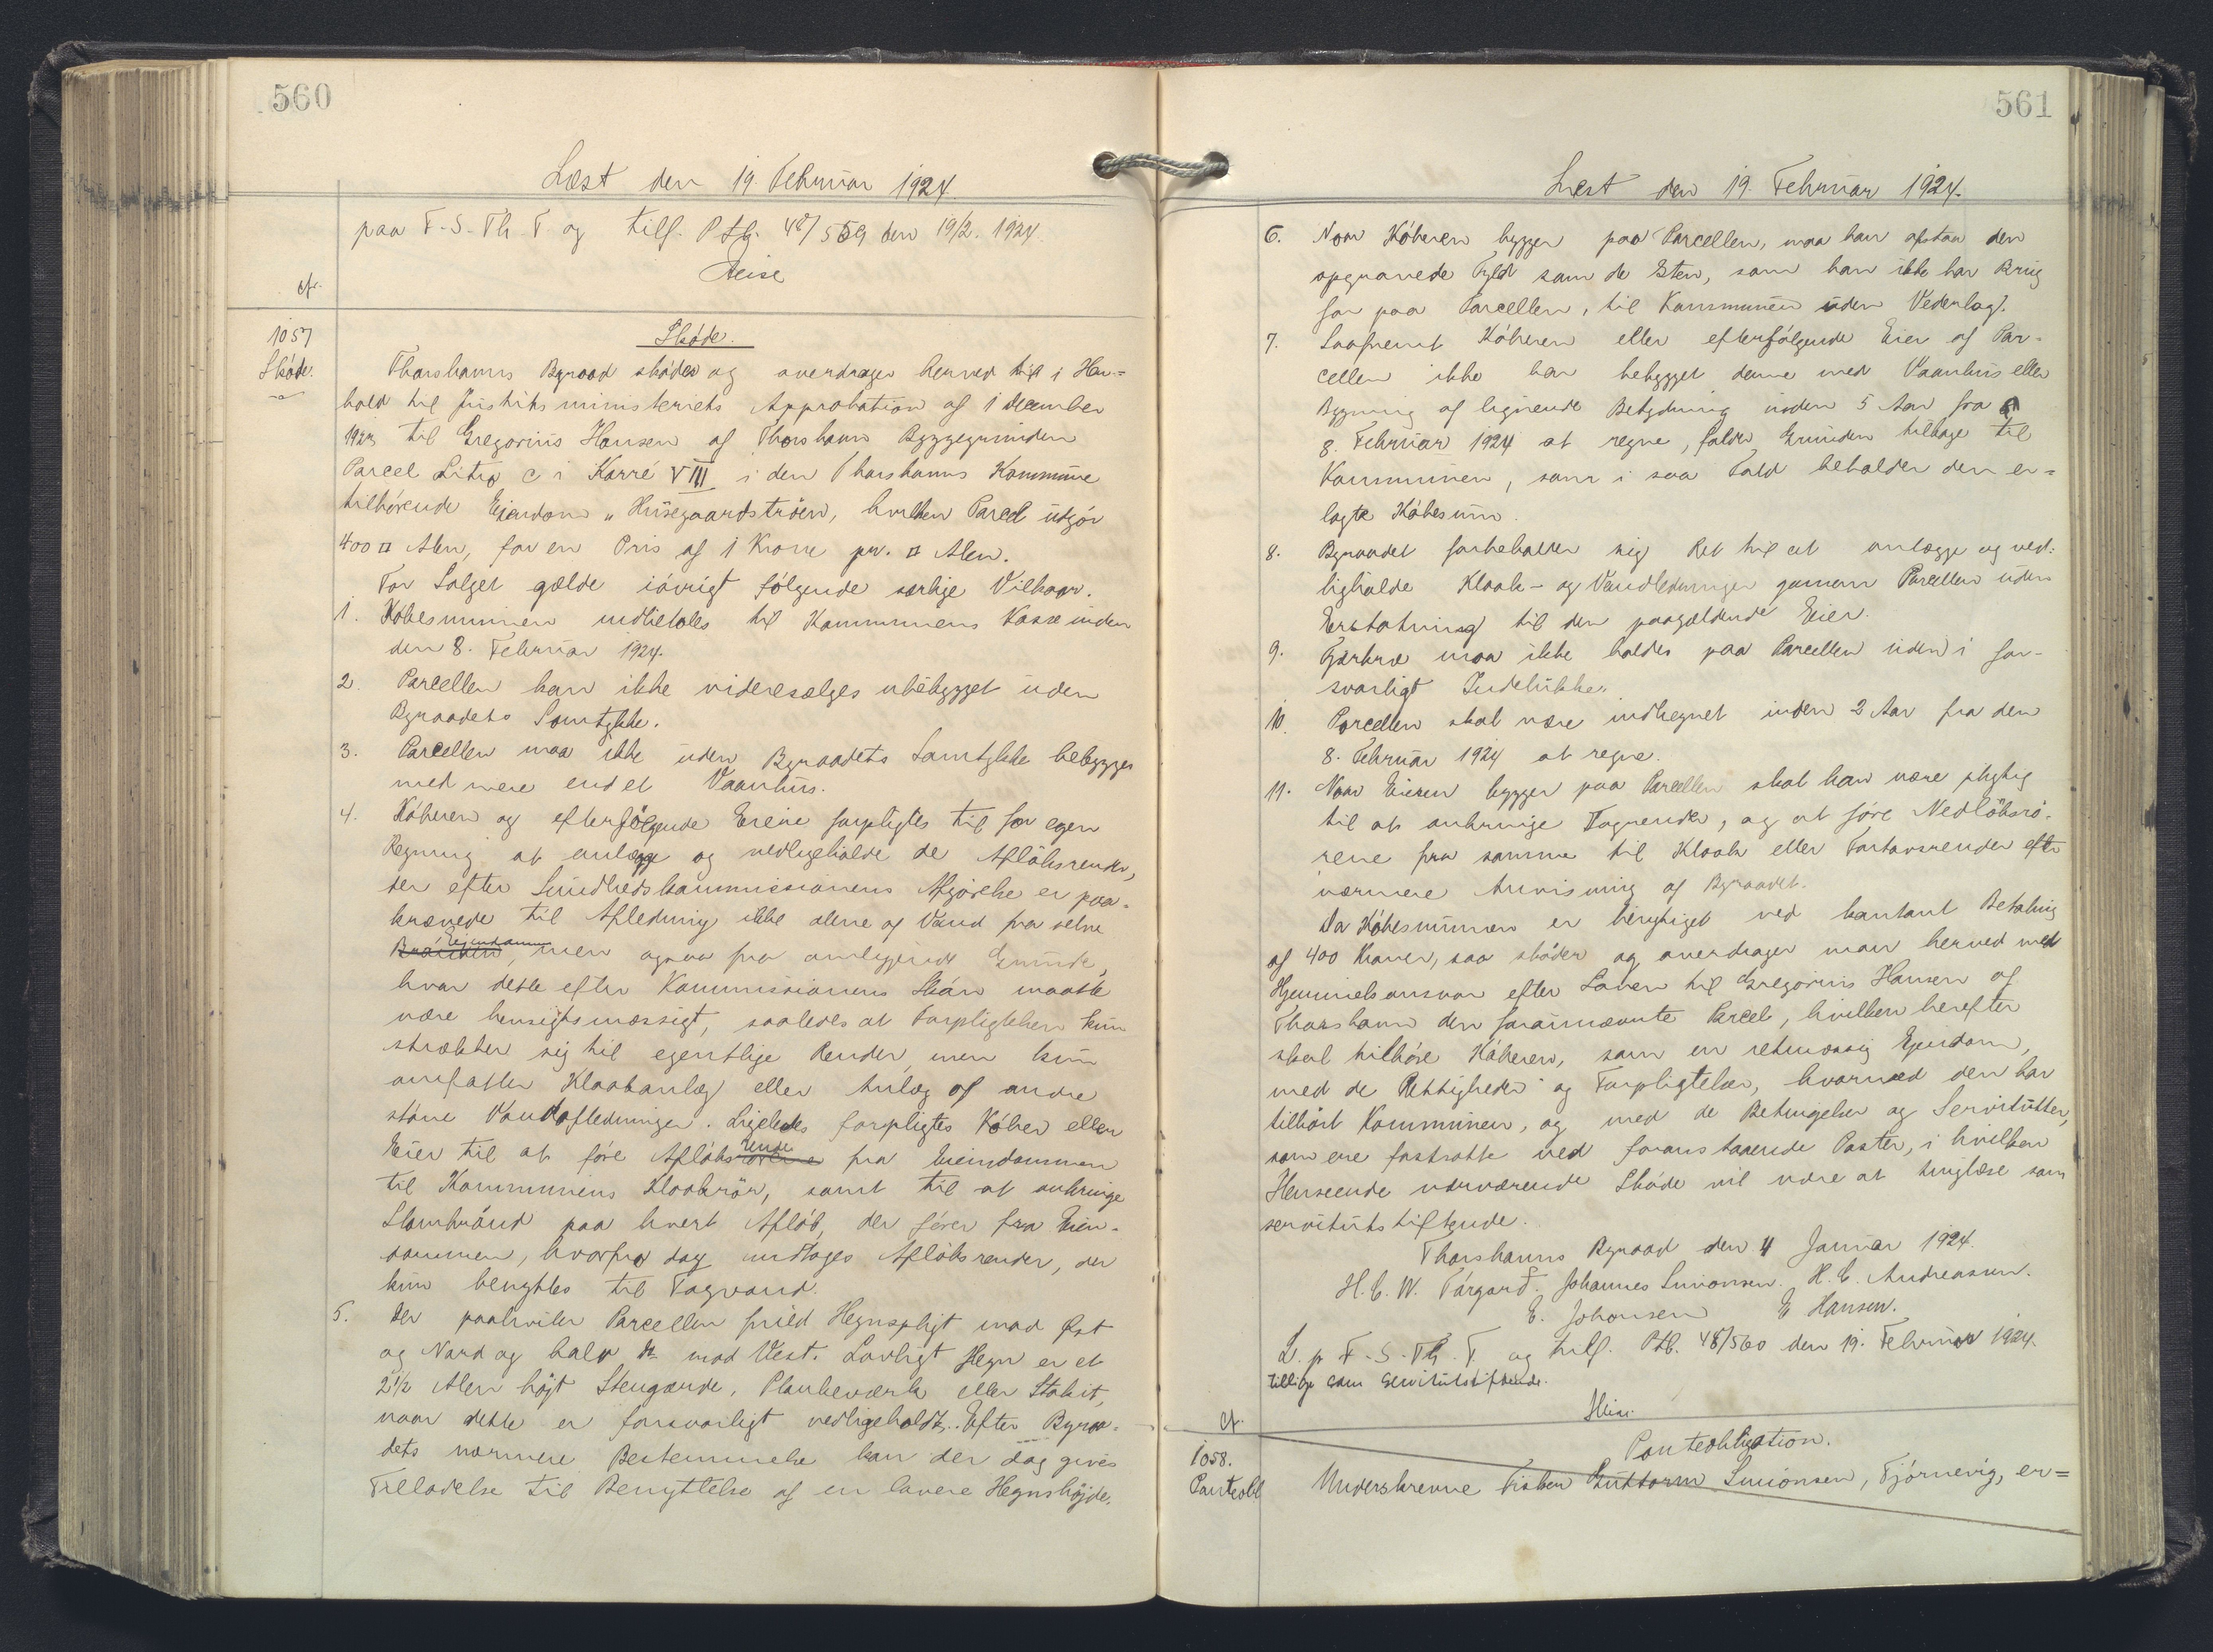 560
Læst den 19. Februar 1924.
paa F-S-Th. T. og tilf. Ptb. 48/559 den 19/2. 1924.
Heise
cfr.
1057
Skøde.
Skøde.
Thorshavns Byraad skøder og overdrager herved til i Hen-
hold til Justitsministeriets Approbation af 1 december
1923 til Gregorius Hansen af Thorshavn Byggegrunden
Parcel Litra c i Karré VIII i den Thorshavns Kommune
tilhørende Ejendom "Húsegaardstrøen, hvilken Parcel udgør
400 □ Alen, for en Pris af 1 Krone pr. □ Alen.
For Salget gælde iøvrigt følgende særlige Vilkaar.
1. Købesummen indbetales til Kommunens Kasse inden
den 8. Februar 1924.
2. Parcellen kan ikke videresælges ubebygget uden
Byraadets Samtykke.
3. Parcellen maa ikke uden Byraadets Samtykke bebygges
med mere end et Vaanhus.
4. Køberen og efterfølgende Ejere forpligtes til for egen
Regning at anlægge og vedligeholde de Afløbsrender,
der efter Sundhedskommissionens Afgørelse er paa-
krævede til Afledning ikke alene af Vand fra selve
Ejendommen, men ogsaa fra omliggende Grunde,
hvor dette efter Kommissionens Skøn maatte
være hensigtsmæssigt, saaledes at Forpligtelsen kun
strækker sig til egentlige Render, men kun
omfatter Kloakanlæg eller Anlæg af andre
støne Vandafledninger. Ligeledes forpligtes Køber eller
Eier til at føre Afløbsrende fra Eiendommen
til Kommunens Kloakrør, samt til at anbringe
Slambrønd paa hvert Afløb, der fører fra Eien-
dommen, hvorfra dog undtages Afløbsrender, der
kun benyttes til Tagvand.
5. Der paahviler Parcellen fuld Hegnspligt mod Øst
og Nord og halv do mod Vest. Lovligt Hegn er et
2 1/2 Alen højt Stengærde, Plankeværk eller Stakit,
naar dette er forsvarligt vedligeholdt. Efter Byraa-
dets nærmere Bestemmelse kan der dog gives
Tilladelse til Benyttelse af en lavere Hegnshøjde.
561
Læst den 19. Februar 1924.
6. Naar Køberen bygger paa Parcellen, maa han afstaa den
opgravede Fyld samt de Sten, som han ikke har Brug
for paa Parcellen, til Kommunen uden Vederlag.
7. Saafremt Køberen eller efterfølgende Eier af Par-
cellen ikke har bebygget denne med Vaanhus eller
Bygning af lignende Betydning inden 5 Aar fra
8. Februar 1924 at regne, falder Grunden tilbage til
Kommunen, som i saa Fald beholder den er-
lagte Købesum.
8. Byraadet forbeholder sig Ret til at anlægge og ved-
ligholde Kloak- og Vandledninger gennem Parcellen uden
Erstatning til den paagældende Eier.
9. Fjerkræ maa ikke holdes paa Parcellen uden i for-
svarligt Indelukke.
10. Parcellen skal være indhegnet inden 2 Aar fra den
8. Februar 1924 at regne.
11. Naar Eieren bygger paa Parcellen skal han være pligtig
til at anbringe Tagrender, og at føre Nedløbsrø-
rene fra samme til Kloak eller Fortovsrender efter
nærmere Anvisning af Byraadet.
Da Købesummen er berigtiget ved kontant Betaling
af 400 Kroner, saa skøder og overdrager man herved med
Hjemmelsansvar efter Loven til Gregorius Hansen af
Thorshavn den forannævnte Parcel, hvilken herefter
skal tilhøre Køberen, som en retmæssig Ejendom,
med de Rettigheder og Forpligtelser, hvormed den har
tilhørt Kommunen, og med de Betingelser og Servitutter,
som ere fastsatte ved foranstaaende Poster, i hvilken
Henseende nærværende Skøde vil være at tinglæse som
servitutstiftende.
Thorshavns Byraad den 4 Januar 1924.
H. C. W. Tórgarð. Johannes Simonsen. H. C. Andreasen.
E. Johansen E Hansen.
L. p F-S-Th. T. og tilf. Ptb. 48/560 den 19. Februar 1924.
tillige som Servitutstiftende.
Heise.
cfr.
1058.
Panteobl
Panteobligation.
Underskrevne Fisker Guttorm Simonsen, Tjørnevig, er=